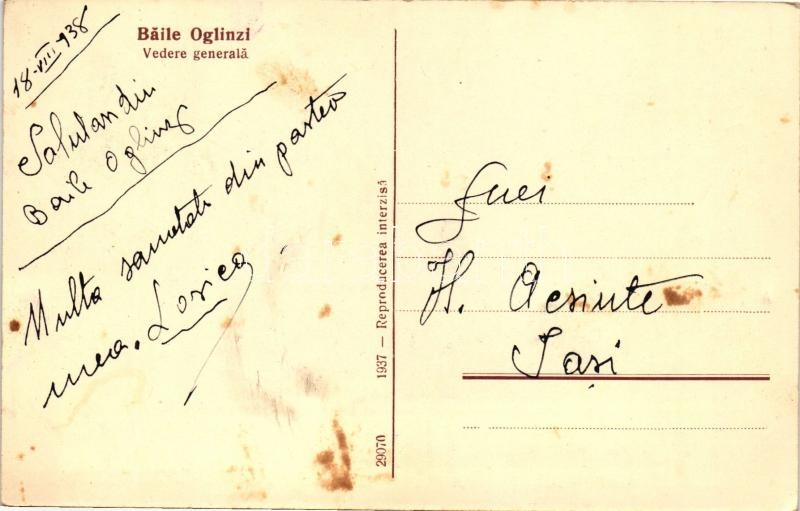 18-VIII-938
Băile Oglinzi
Vedere generală
Salutari din
Baile Oglinzi
Multa sanatate din partea
mea. Lorica
1937 — Reproducerea interzisă
29070
H. Acsinte
Iași